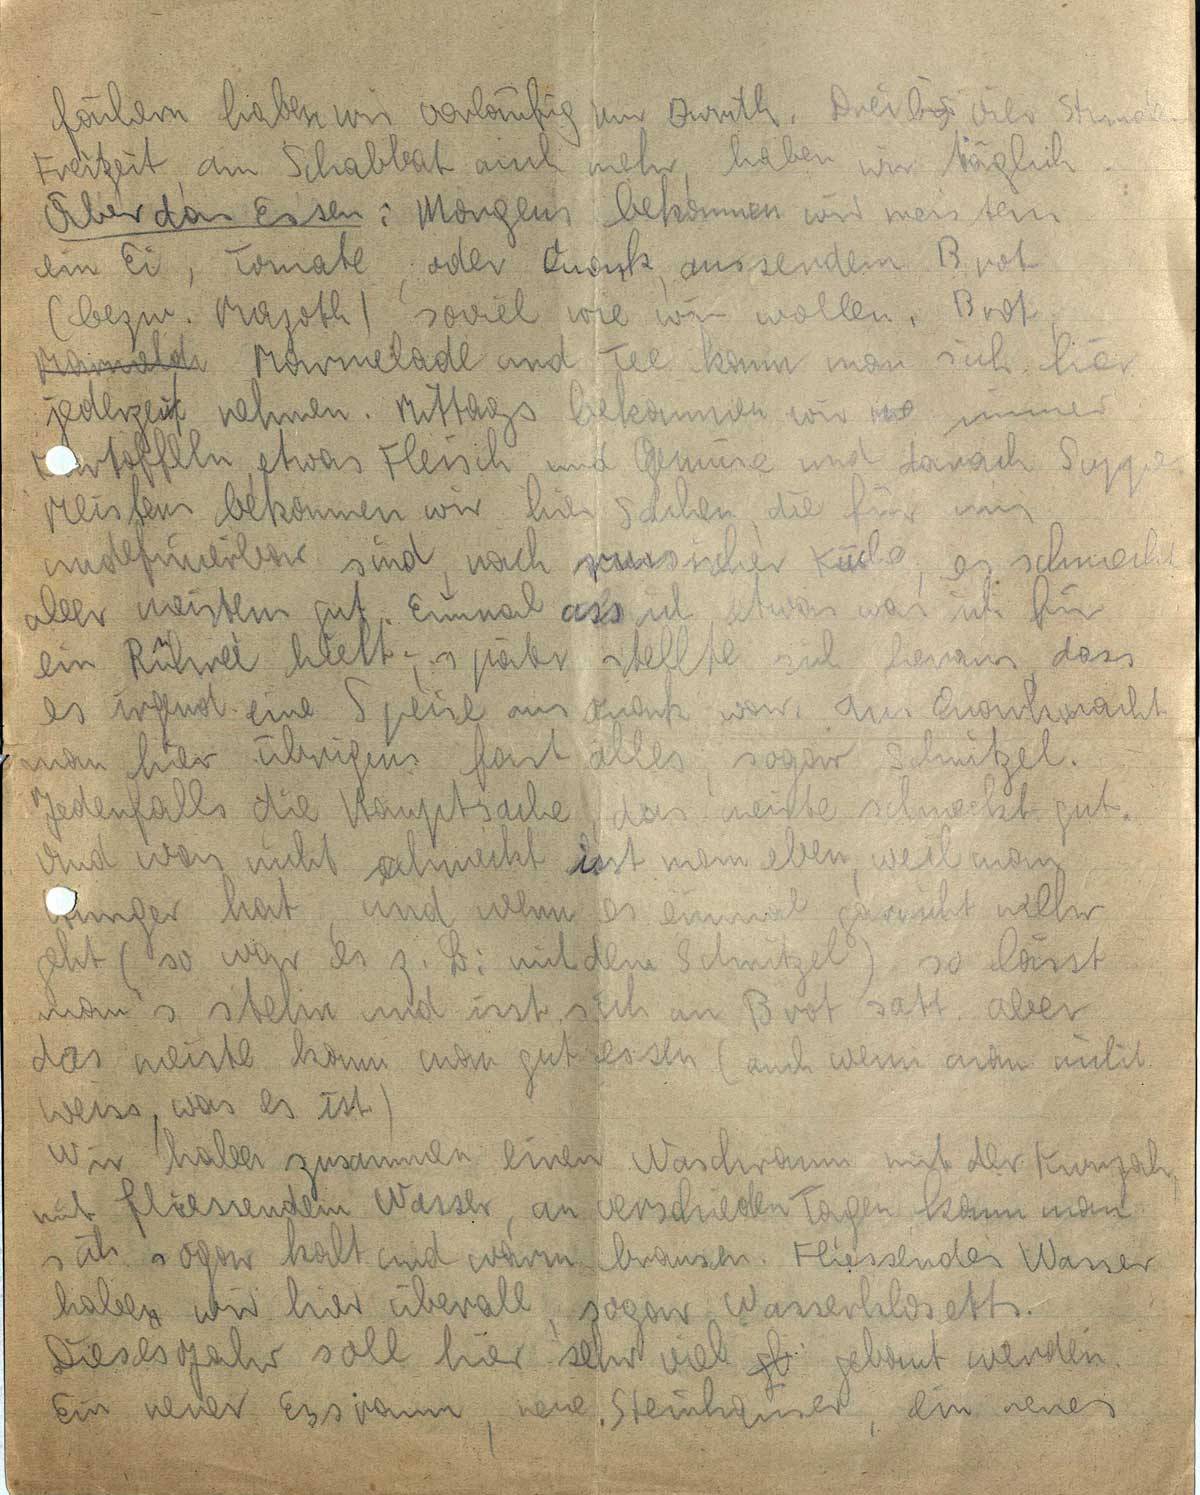 fächern haben wir vorläufig nur Iwrith. Drei bis vier Stunden
Freizeit, am Schabbat auch mehr, haben wir täglich.
Über das Essen: Morgens bekommen wir meistens
ein Ei, Tomate, oder Quark, ausserdem Brot
(bezw. Mazoth) soviel wie wir wollen. Brot,
Marmelade und Tee kann man sich hier
jederzeit nehmen. Mittags bekommen wir immer
Kartoffeln, etwas Fleisch und Gemüse und danach Suppe.
Meistens bekommen wir hier Sachen die für uns
undefinierbar sind, nach russischer Küche, es schmeckt
aber meistens gut. Einmal ass ich etwas was ich für
ein Rührei hielt, später stellte sich heraus, dass
es irgend eine Speise aus Quark war. Aus Quark macht
man hier übrigens fast alles, sogar Schnitzel.
Jedenfalls die Hauptsache, das meiste schmeckt gut.
Und was nicht schmeckt isst man eben, weil man
Hunger hat, und wenn es einmal garnicht mehr
geht (so war es z. B: mit dem Schnitzel) so lässt
man's stehn und isst sich an Brot satt. aber
das meiste kann man gut essen (auch wenn man nicht
weiss, was es ist)
Wir haben zusammen einen Waschraum mit der Kwuzah,
mit fliessendem Wasser, an verschieden Tagen kann man
sich sogar kalt und warm brausen. Fliessendes Wasser
haben wir hier überall, sogar Wasserklosetts.
Dieses Jahr soll hier sehr viel gebaut werden.
Ein neuer Essraum, neue Steinhäuser, ein neues